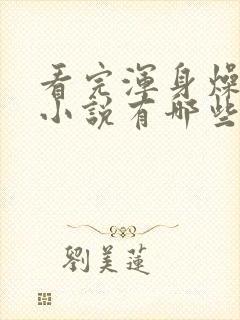 看完渾身燥
小說有哪些
劉美蓮